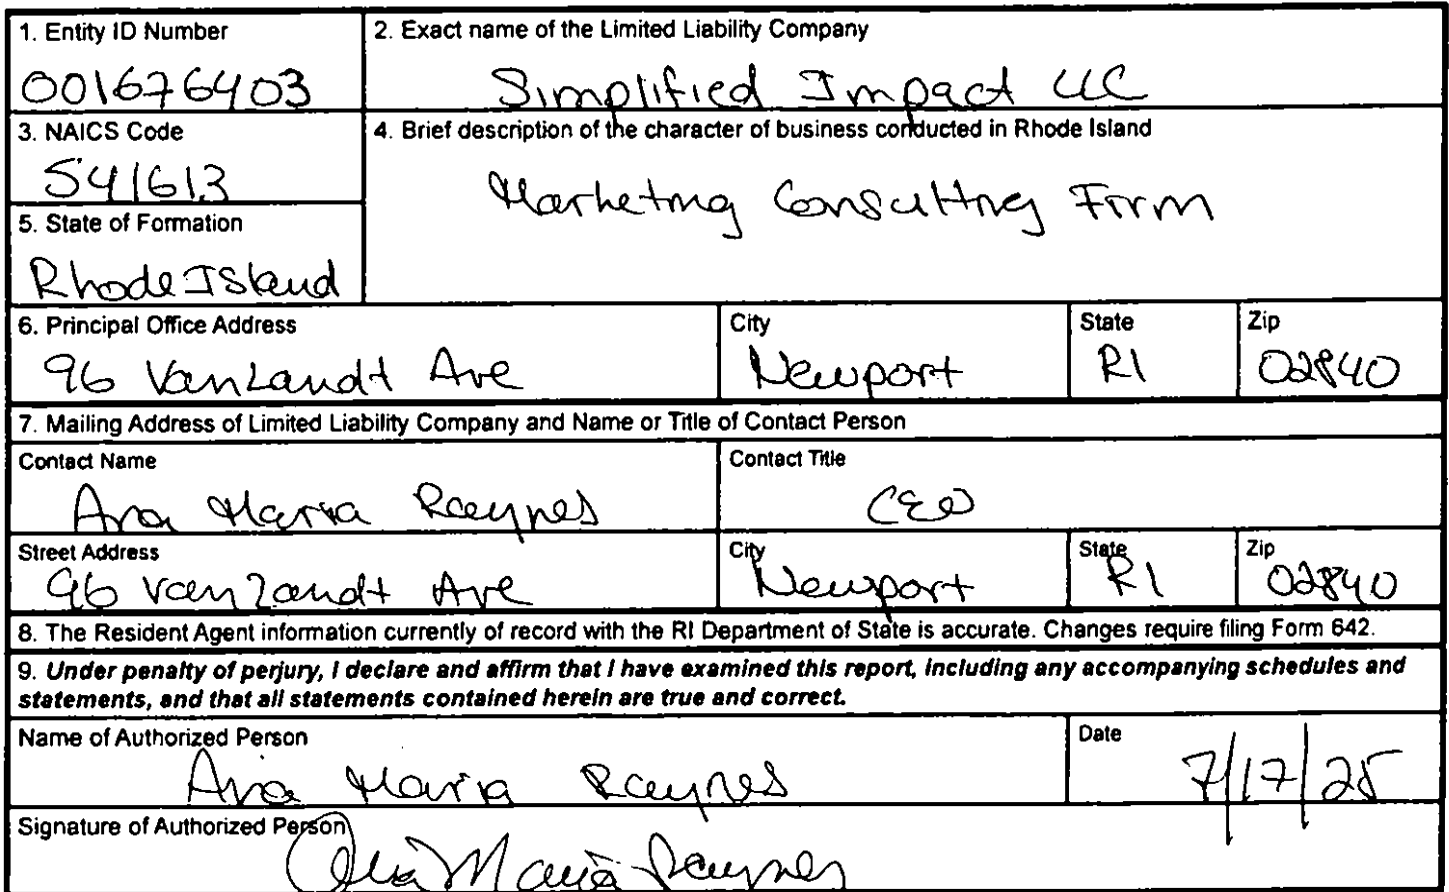 1. Entity ID Number
001676403
2. Exact name of the Limited Liability Company
Simplified Impact LLC
3. NAICS Code
541613
4. Brief description of the character of business conducted in Rhode Island
Marketing Consulting Firm
5. State of Formation
Rhode Island
6. Principal Office Address
96 VanZandt Ave
City
Newport
State
RI
Zip
02840
7. Mailing Address of Limited Liability Company and Name or Title of Contact Person
Contact Name
Ana Maria Raynes
Contact Title
CEO
Street Address
96 VanZandt Ave
City
Newport
State
RI
Zip
02840
8. The Resident Agent information currently of record with the RI Department of State is accurate. Changes require filing Form 642.
9. Under penalty of perjury, I declare and affirm that I have examined this report, including any accompanying schedules and
statements, and that all statements contained herein are true and correct.
Name of Authorized Person
Ana Maria Raynes
Date
7/17/25
Signature of Authorized Person
Ana Maria Raynes